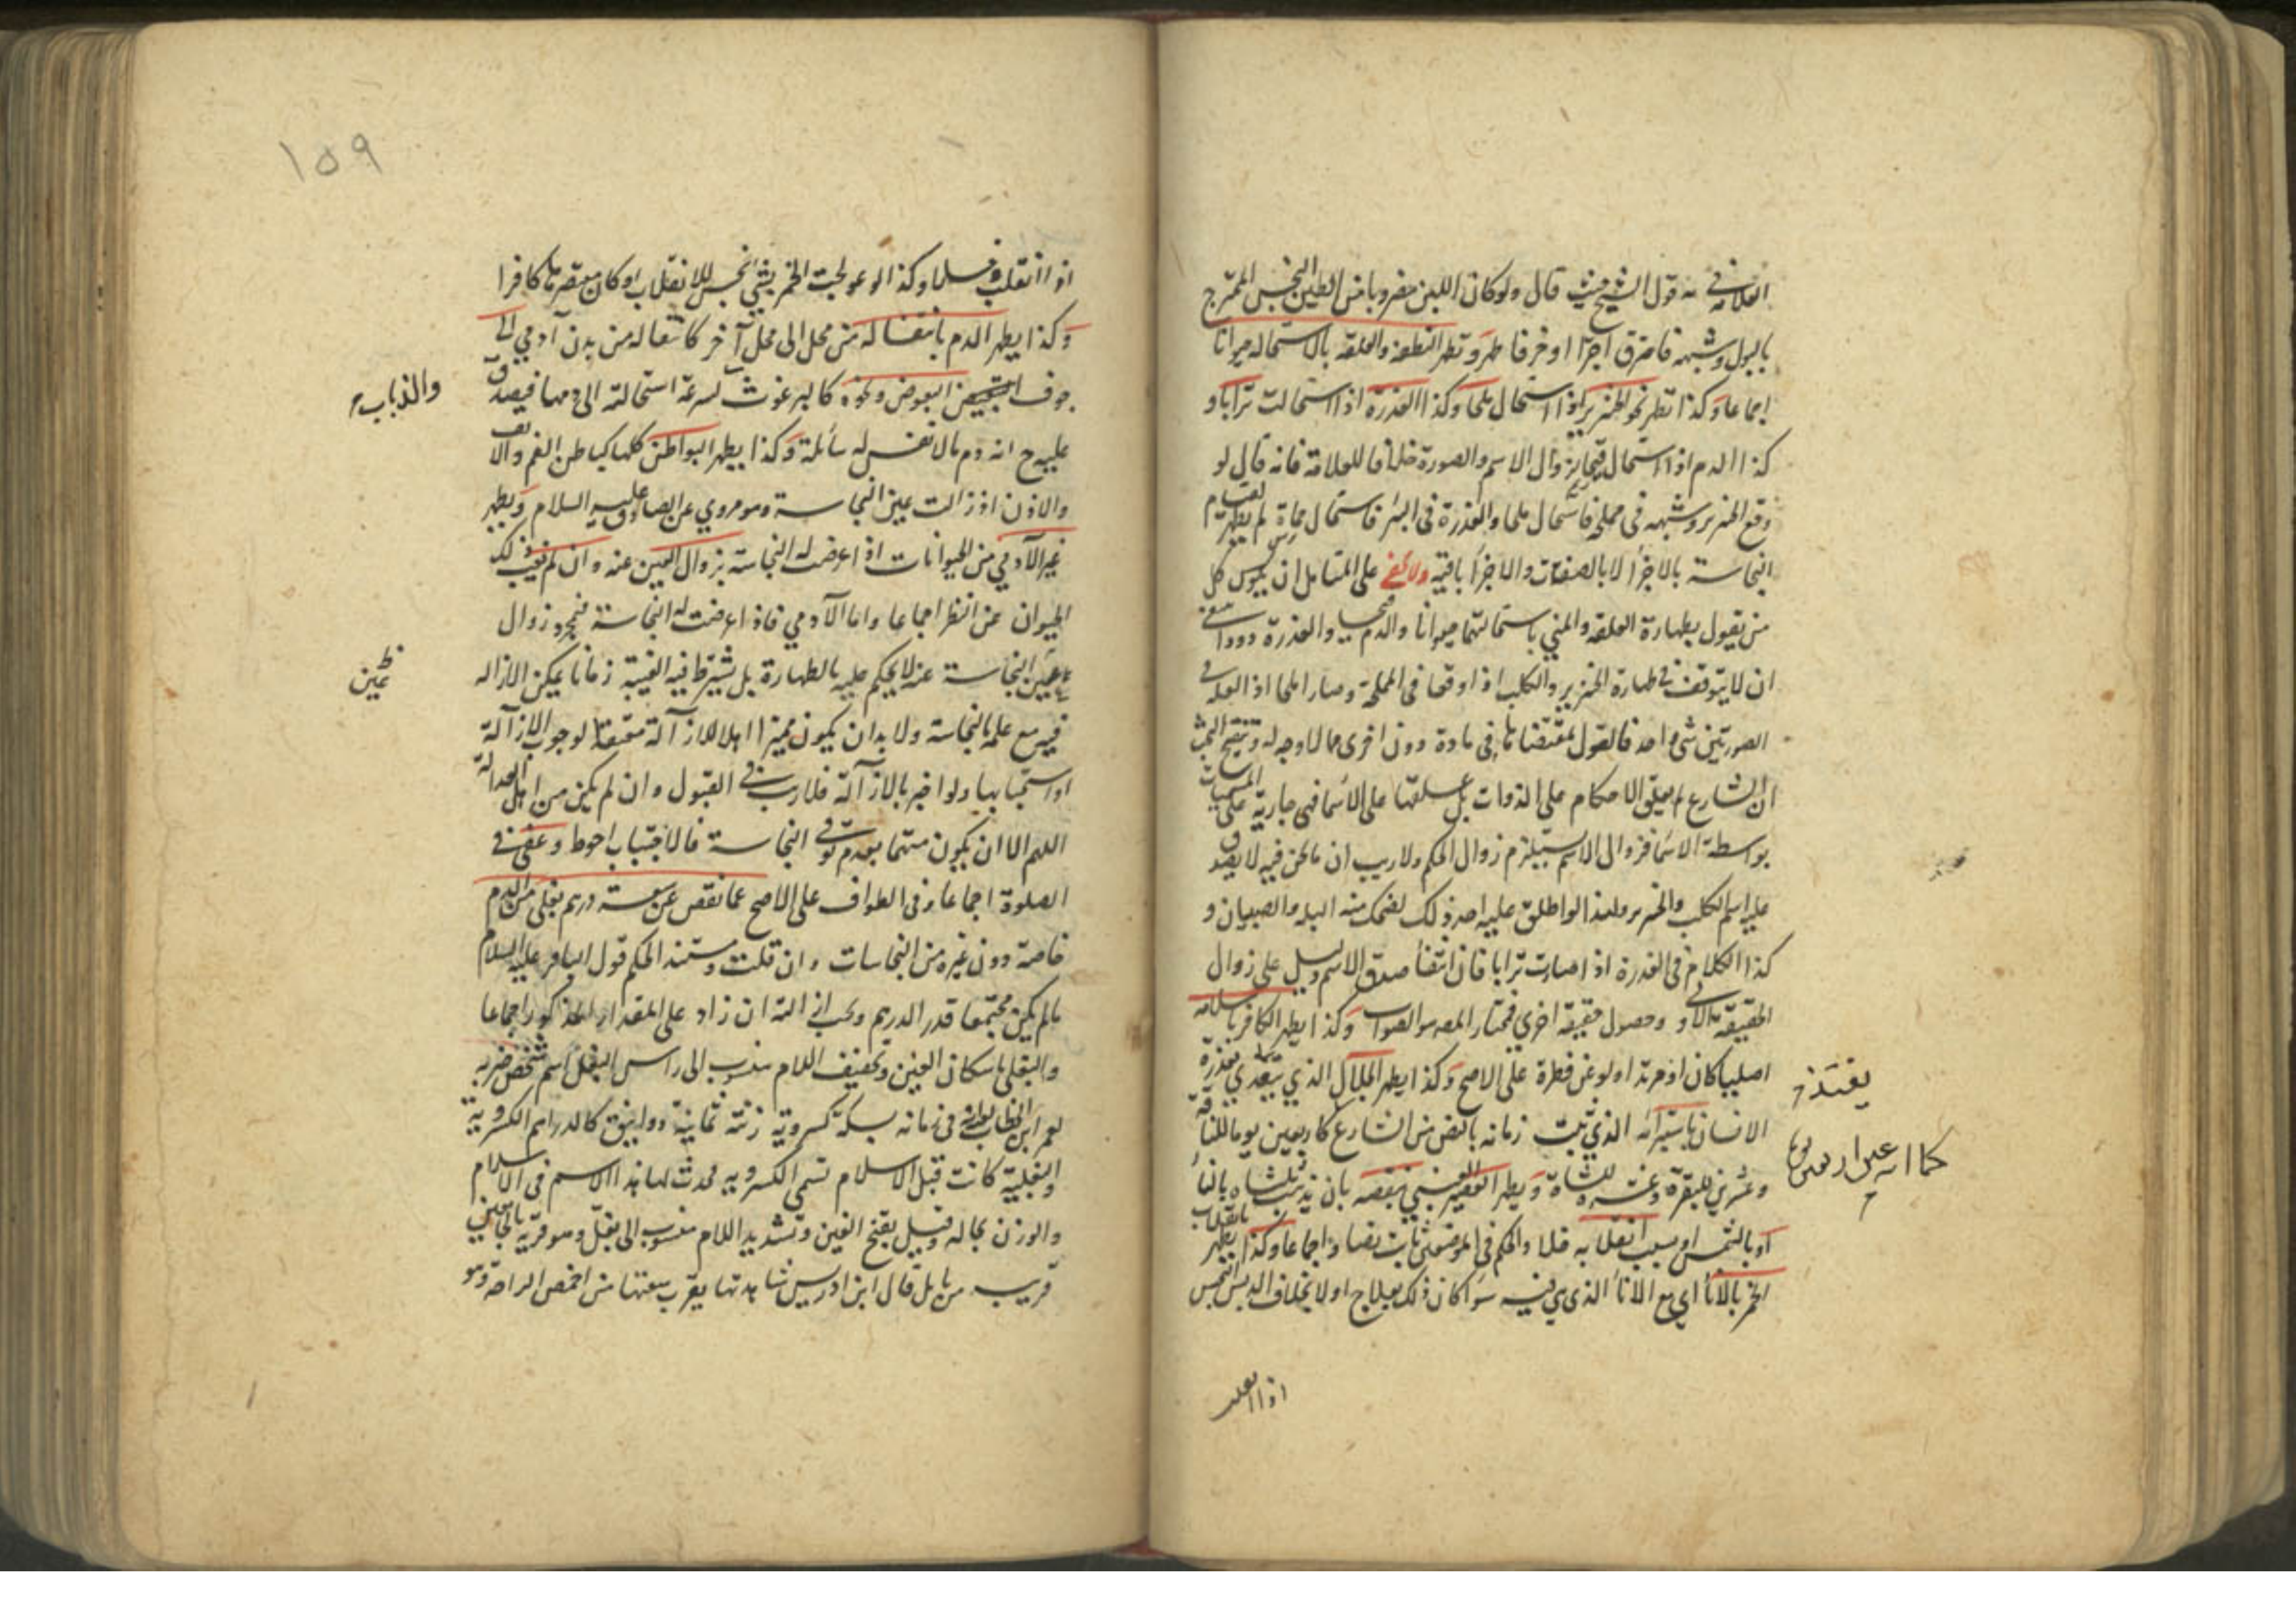 العلامة في قول الشيخ حيث قال ولو كان اللبن مضروبا من الطين النجس الممتزج
بالبول وشبهه فاحرق آجرا او خزفا طهر وتطهر النطفة والعلقة بالاستحالة حيوانا
اجماعا وكذا تطهر نحو الخنزير اذا استحال ملحا وكذا العذرة اذا استحالت ترابا و
كذا الدم اذا استحال قيحا لزوال الاسم والصورة خلافا للعلامة فانه قال لو
وقع الخنزير وشبهه في مملحة فاستحال ملحا والعذرة في البئر فاستحال حمأة لم يطهر لقيام
النجاسة بالاجزاء لا بالصفات والاجزاء باقية ولا يخفى على المتأمل ان كل
من يقول بطهارة العلقة والمني باستحالتهما حيوانا والدم قيحا والعذرة دودا
ان لا يتوقف في طهارة الخنزير والكلب اذا وقعا في المملحة وصارا ملحا اذ العلة في
الصورتين شئ واحد فالقول بمقتضاها في مادة دون اخرى مما لا وجه له
ان الشارع لم يعلق الاحكام على الذوات بل علقها على الاسماء فهي جارية على المسميات
بواسطة الاسماء فزوال الاسم يستلزم زوال الحكم ولا ريب ان ما نحن فيه لا يصدق
عليه اسم الكلب والخنزير ولهذا لو اطلق عليه احد ذلك لضحك منه البله والصبيان و
كذا الكلام في العذرة اذا صارت ترابا فان انتفاء صدق الاسم دليل على زوال
الحقيقة الاولى وحصول حقيقة اخرى فمختار المصـ هو الصواب وكذا يطهر الكافر باسلامه
اصليا كان او مرتدا ولو عن فطرة على الاصح وكذا يطهر الجلال الذي بعذرة
الانسان باستبرائه الذي ثبت زمانه بالنص من الشارع كاربعين يوما للناقة
وعشرين للبقرة وعشرة للشاة ويطهر العصير العنبي بنقصه بان يذهب ثلثاه بالنار
او بالشمس او بسبب انقلابه خلا والحكم في الموضعين ثابت نصا واجماعا وكذا يطهر بانقلاب
الخمر بالاناء اي مع الاناء الذي هي فيه سواء كان ذلك بعلاج او لا بخلاف الدبس النجس
يغتذي
اذا انقلب
١٥٩
اذا انقلب خلا وكذا لو عولجت الخمر بشئ نجس للانقلاب او كان معتصرها كافرا
وكذا يطهر الدم بانتقاله من محل الى محل آخر كانتقاله من بدن آدمي الى
جوف البعوض ونحوه كالبرغوث لسرعة استحالته الى دمها فيصدق
والذباب
عليه ح انه دم ما لا نفس له سائلة وكذا يطهر البواطن كلها كباطن الفم والانف
والاذن اذا زالت عين النجاسة وهو مروي عن الصادق عليه السلام ويطهر
غير الآدمي من الحيوانات اذا عرضت له النجاسة بزوال العين عنه وان لم يغب ذلك
الحيوان عن النظر اجماعا واما الآدمي فاذا عرضت له النجاسة فبمجرد زوال
عين النجاسة عنه لا يحكم عليه بالطهارة بل يشترط فيه الغيبة زمانا يمكن الازالة
عين
فيه مع علمه بالنجاسة ولا بد ان يكون مميزا اهلا للازالة معتقدا لوجوب الازالة
او استحبابها ولو اخبر بالازالة فلا ريب في القبول وان لم يكن من اهل العدالة
اللهم الا ان يكون متهما بعدم توقي النجاسة فالاجتناب احوط وعفي في
الصلوة اجماعا وفي الطواف على الاصح عما نقص عن سعة درهم بغلي من الدم
خاصة دون غيره من النجاسات وان قلت ومستند الحكم قول الباقر عليه السلام
ما لم يكن مجتمعا قدر الدرهم وتجب ازالته ان زاد على المقدار المذكور اجماعا
والبغلي باسكان الغين وتخفيف اللام منسوب الى راس البغل اسم شخص ضربه
لعمر ابن الخطاب في زمانه بسكة كسروية زنته ثمانية دوانيق كالدراهم الكسروية
والبغلية كانت قبل الاسلام تسمى الكسروية فحدث لها هذا الاسم في الاسلام
والوزن بحاله وقيل بفتح الغين وتشديد اللام منسوب الى بغل وهو قرية بالجامعين
قريب من بابل قال ابن ادريس شاهدتها يقرب سعتها من اخمص الراحة وهو